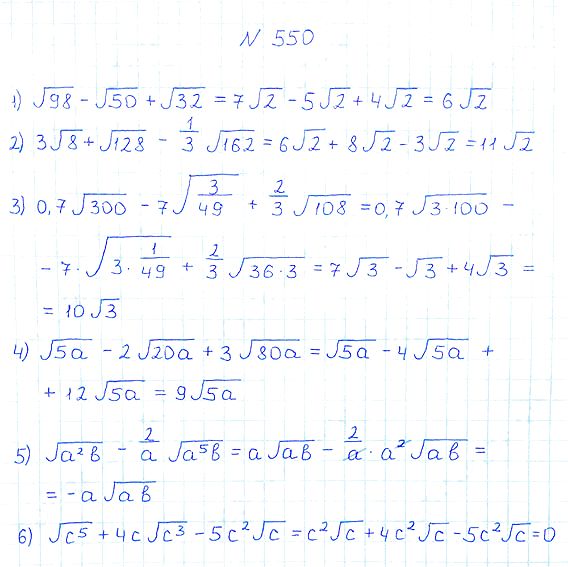 N 550
1) √98 - √50 + √32 = 7√2 - 5√2 + 4√2 = 6√2
2) 3√8 + √128 - 1/3 √162 = 6√2 + 8√2 - 3√2 = 11√2
3) 0,7√300 - 7√(3/49) + 2/3 √108 = 0,7√(3·100) -
- 7·√(3·1/49) + 2/3 √(36·3) = 7√3 - √3 + 4√3 =
= 10√3
4) √5a - 2√20a + 3√80a = √5a - 4√5a +
+ 12√5a = 9√5a
5) √a²b - 2/a √a⁵b = a√ab - 2/a · a²√ab =
= -a√ab
6) √c⁵ + 4c√c³ - 5c²√c = c²√c + 4c²√c - 5c²√c = 0